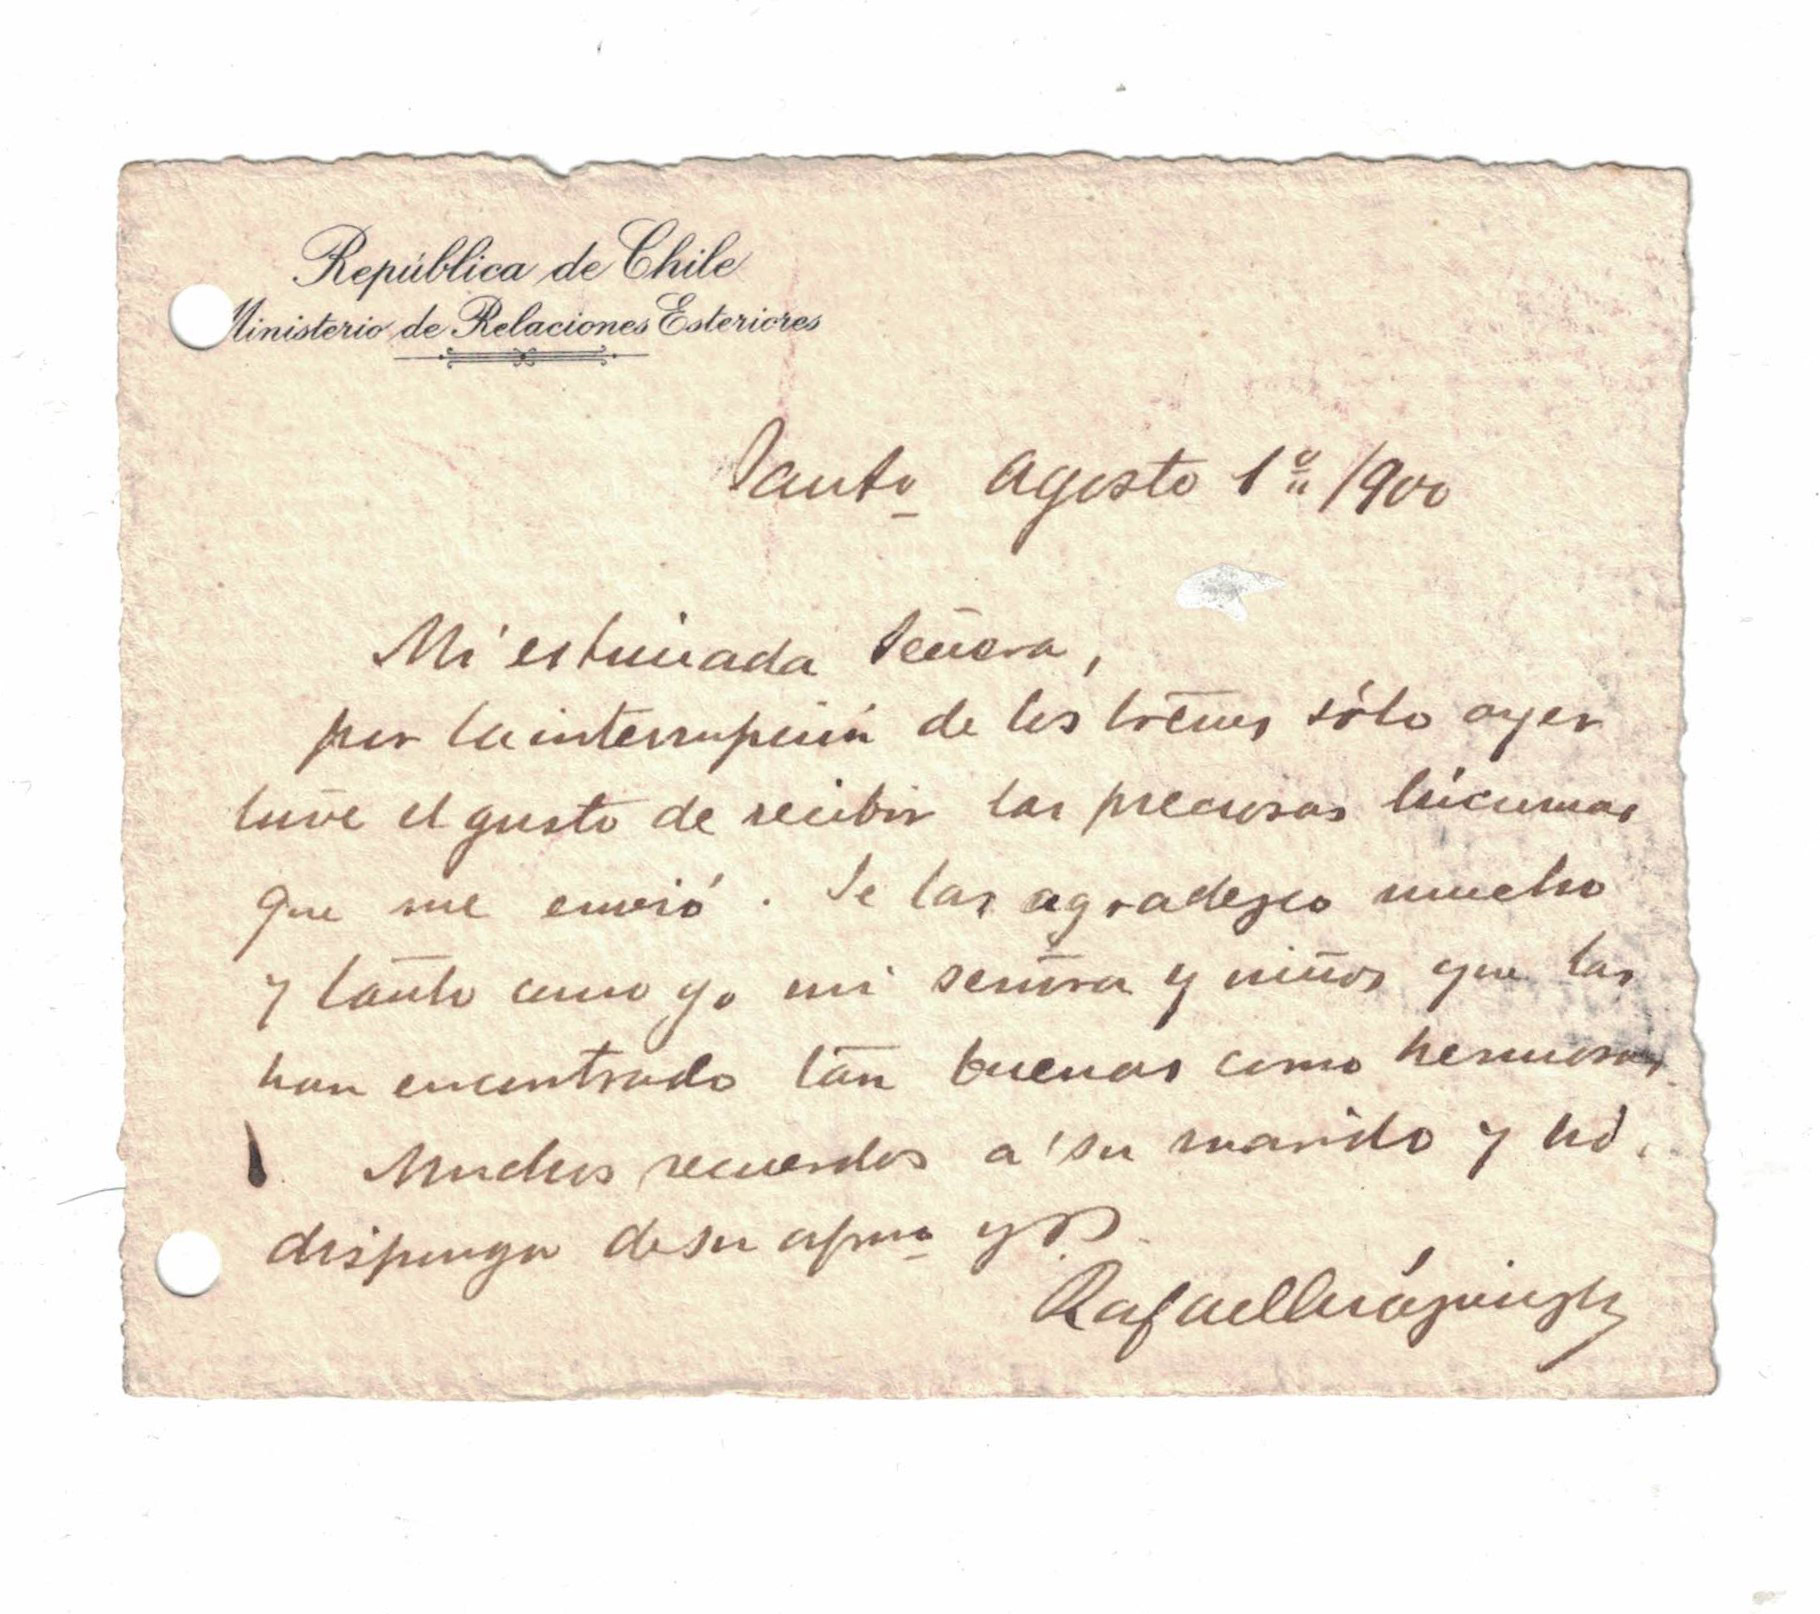 República de Chile
Ministerio de Relaciones Esteriores
Santo Agosto 1º /900
Mi estimada Señora,
por la interrupción de los trenes sólo ayer
tuve el gusto de recibir las preciosas lúcumas
que me envió. Se las agradezco mucho
y tanto como yo mi señora y niños que las
han encontrado tan buenas como hermosas.
Muchos recuerdos a su marido y Ud.
disponga de su afmo y S
Rafael Errázuriz